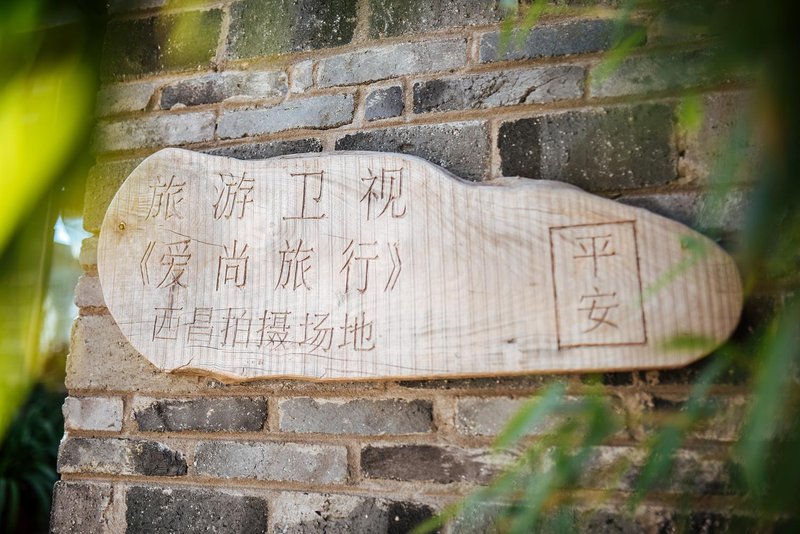 旅游卫视
《爱尚旅行》
西昌拍摄场地
平
安